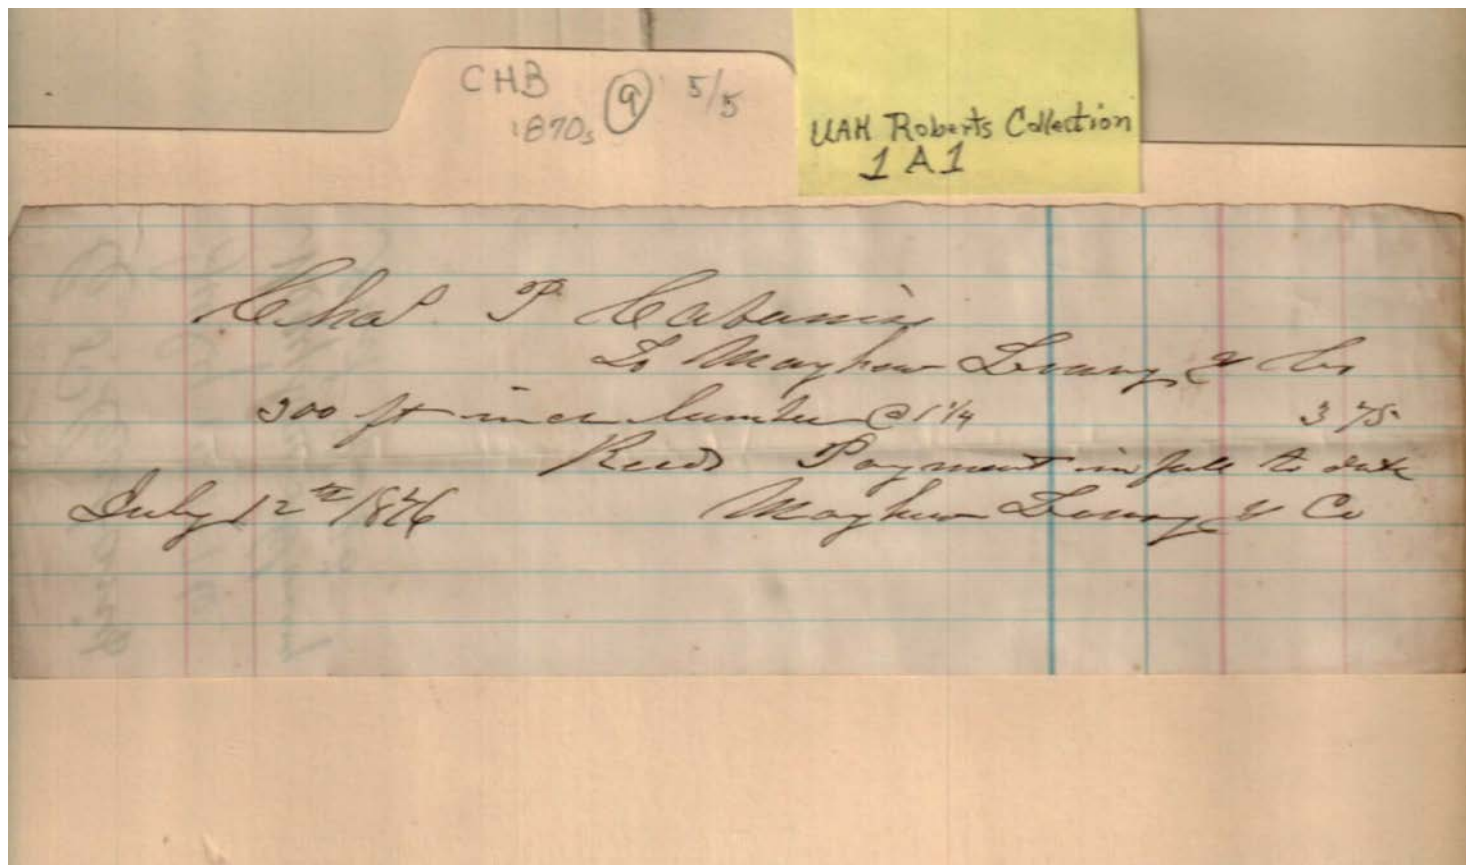 CHB ⑨ 5/5
1870s
UAH Roberts Collection
1 A 1
Chas P Cabaniss
To Mayhew & Co
300 ft inch lumber @ 1 1/4 3 75
Recd Payment in full to date
July 12th 1876 Mayhew & Co